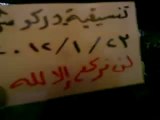 تنسيقية دركوش
٢٠١٢/١/٢٣
لن نركع إلا لله